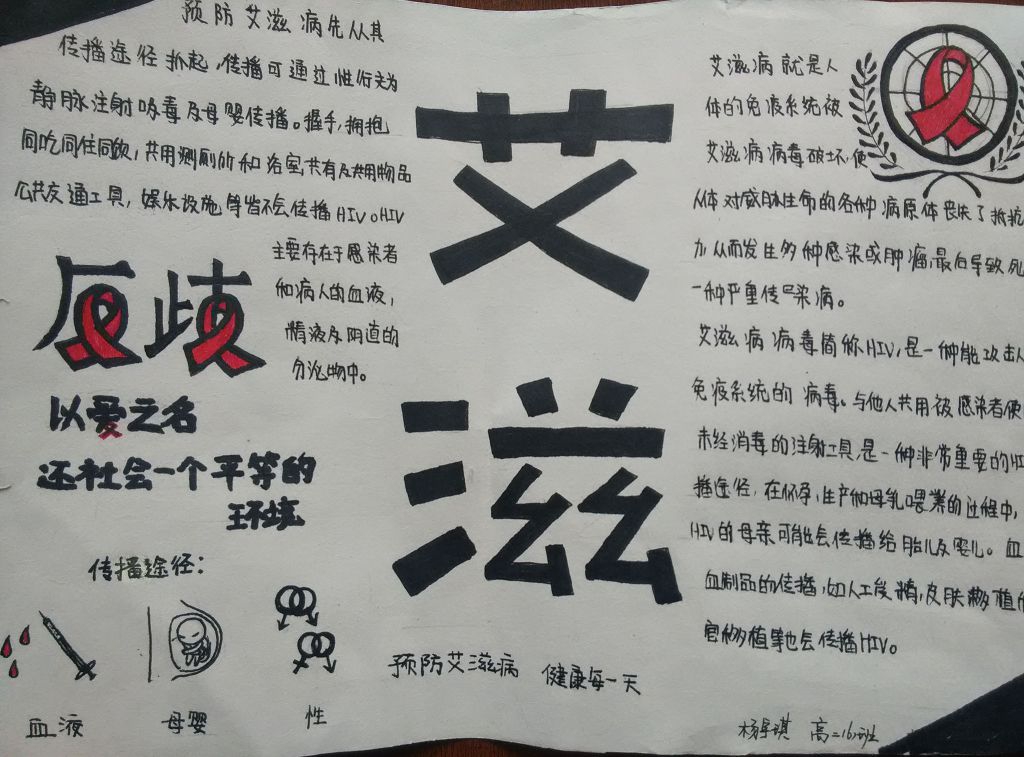 预防艾滋病先从其
传播途径扒起,传播可通过性行为
静脉注射吸毒及母婴传播。握手,拥抱
同吃同住同饮,共用测厕所和浴室,共有及共用物品
公共交通工具,娱乐设施等皆不会传播HIV。HIV
主要存在于感染者
和病人的血液,
精液及阴道的
分泌物中。
反歧
以爱之名
还社会一个平等的
环境
传播途径:
血液
母婴
性
艾滋
预防艾滋病 健康每一天
艾滋病就是人
体的免疫系统被
艾滋病病毒破坏,使
人体对威胁生命的各种病原体丧失了抵抗
力从而发生多种感染或肿瘤,最后导致死
一种严重传染病。
艾滋病病毒简称HIV,是一种能攻击人
免疫系统的病毒。与他人共用被感染者使
未经消毒的注射工具,是一种非常重要的HI
播途径,在怀孕,生产和母乳喂养的过程中,
HIV的母亲可能会传播给胎儿及婴儿。血
血制品的传播,如人工受精,皮肤移植
官移植等也会传播HIV。
高二16班